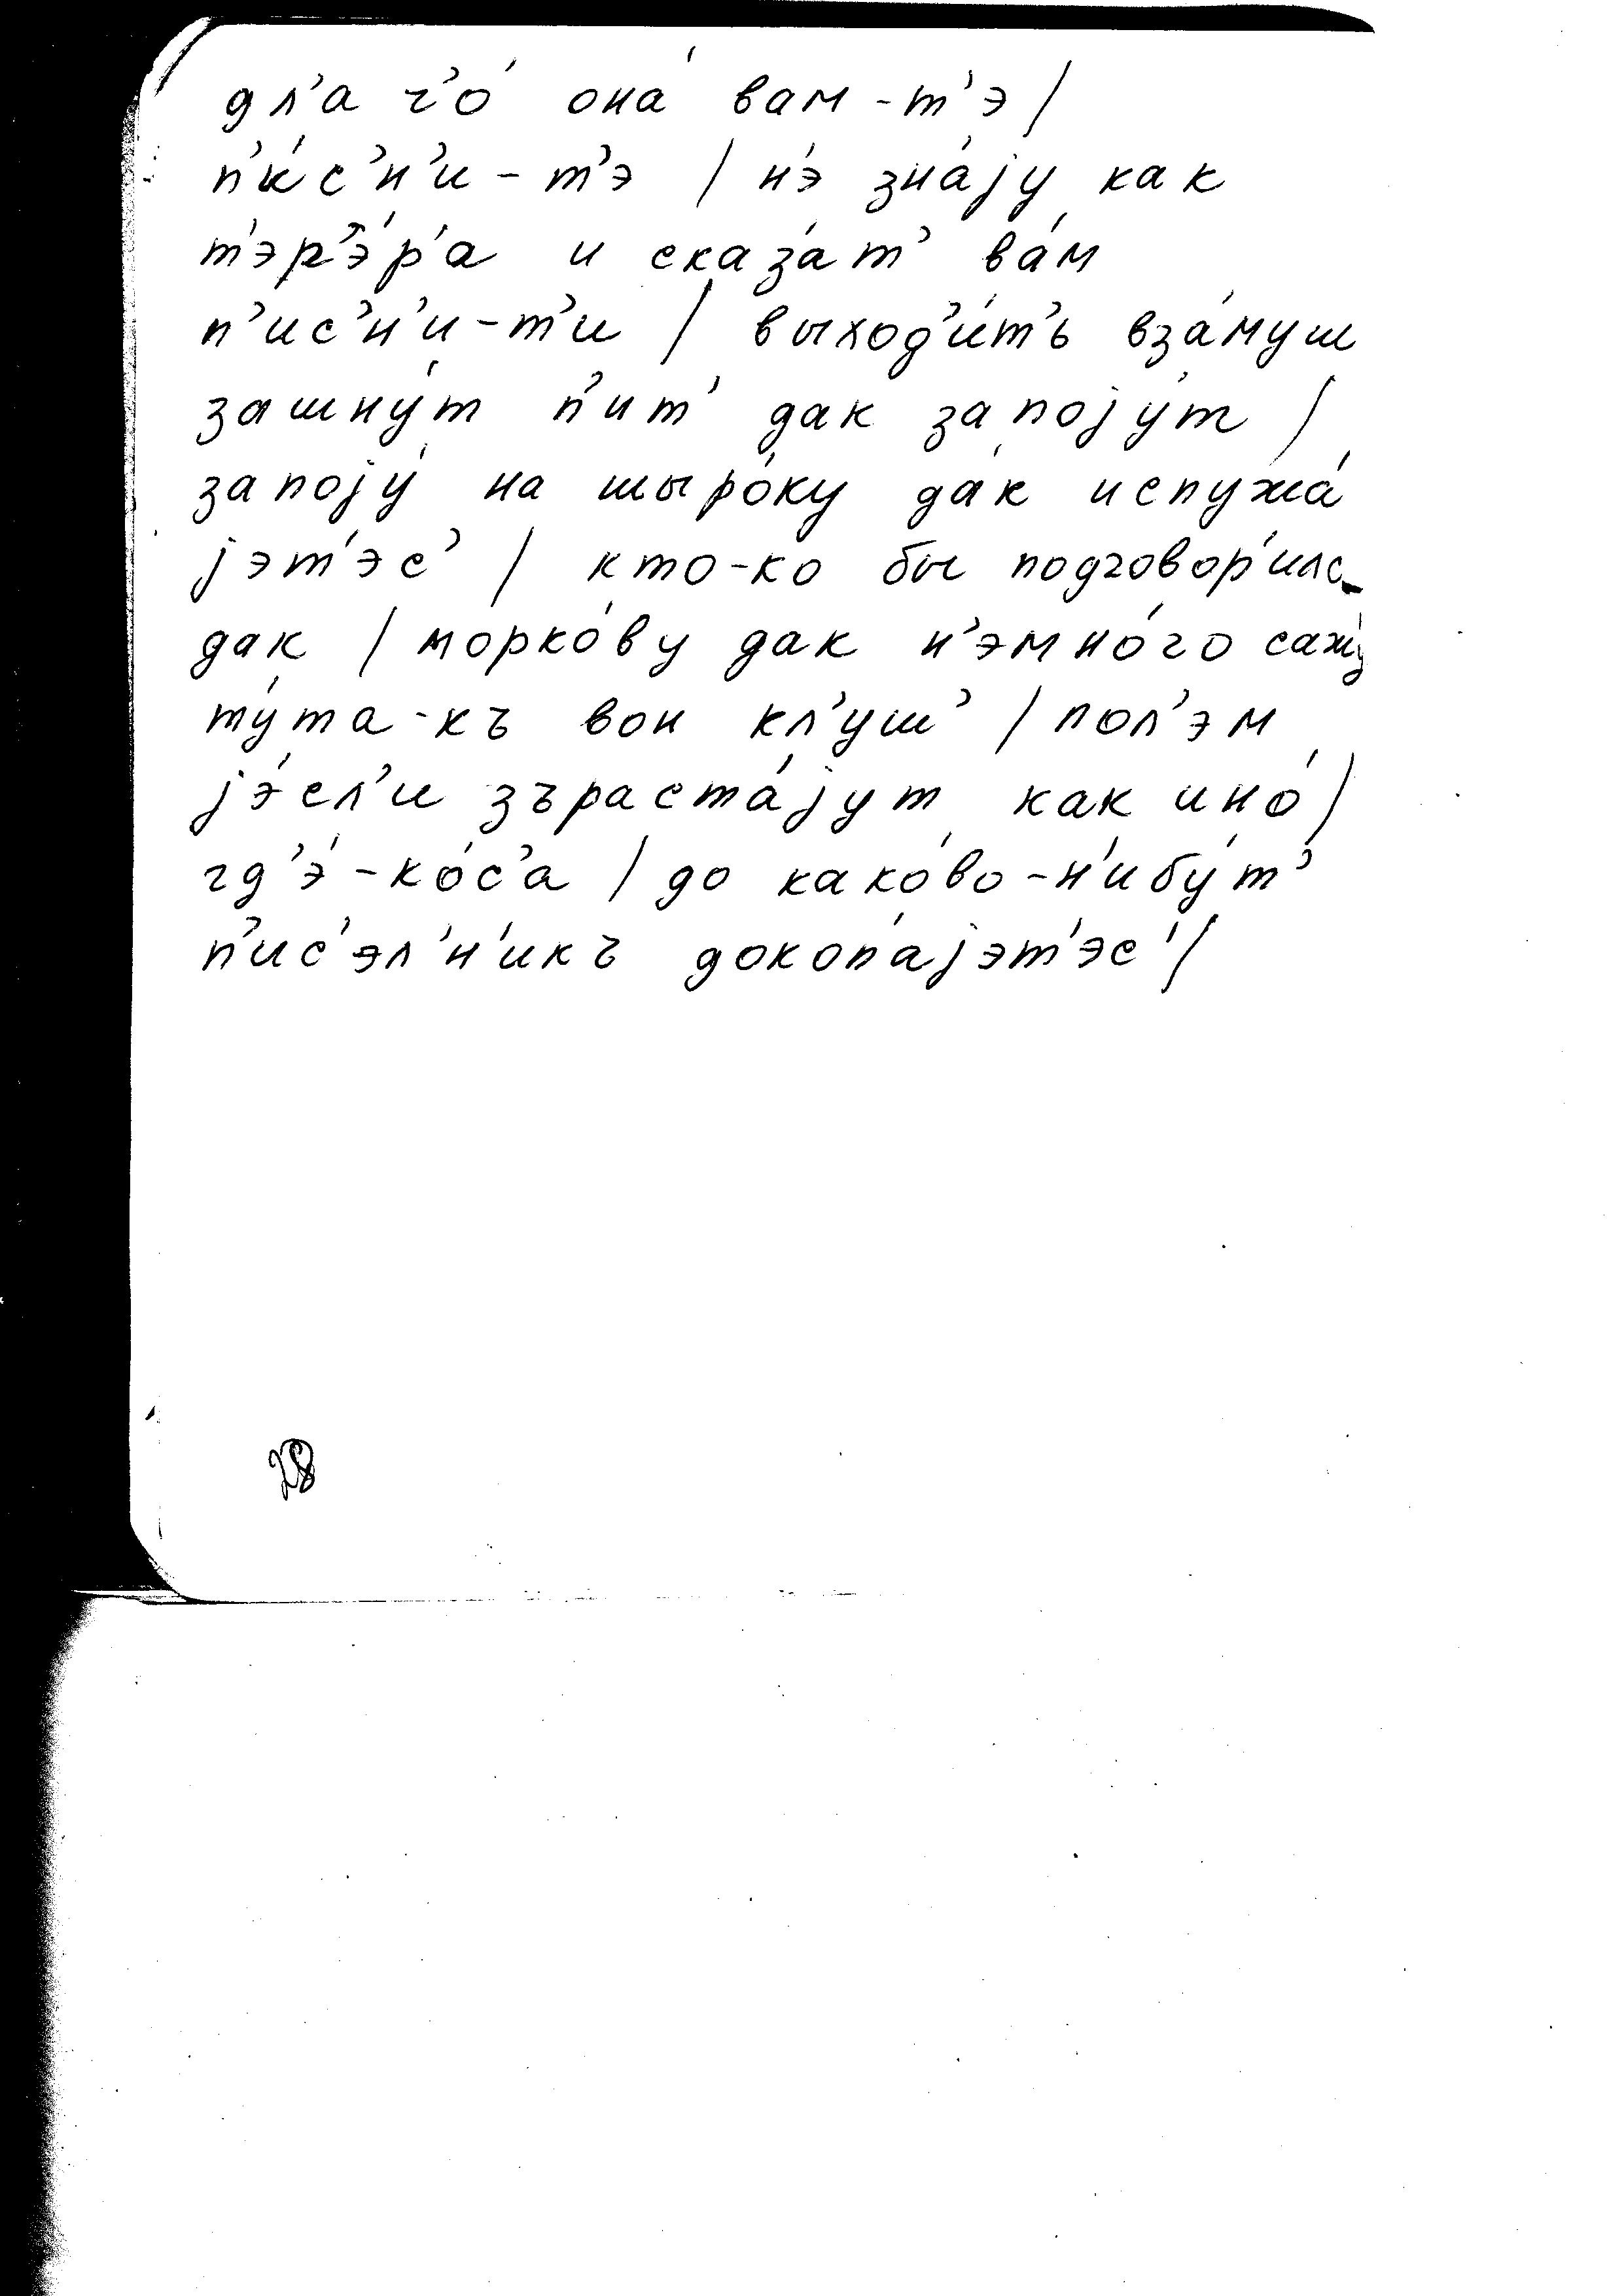 дл’а ч’о́ она́ вам-т’э /
п’и́с’н’и-т’э / н’э зна́jу как
т’эр’э́р’а и сказа́т’ ва́м
п’ис’н’и-т’и / выход’и́т’ь вза́муш
зашну́т п’ит’ дак запоjу́т /
запоjу́ на шыро́ку да́к испужа́
jэт’эс’ / кто-ко бы подговор’илс
дак /морко́ву дак н’эмно́го сажу
ту́та-къ вон кл’уш’ / пол’эм
jэ́сл’и зъраста́jут как ино́ /
гд’э́-ко́с’а / до како́во-н’ибу́т’
п’ис’эл’н’икъ докопа́jэт’эс’ /
28